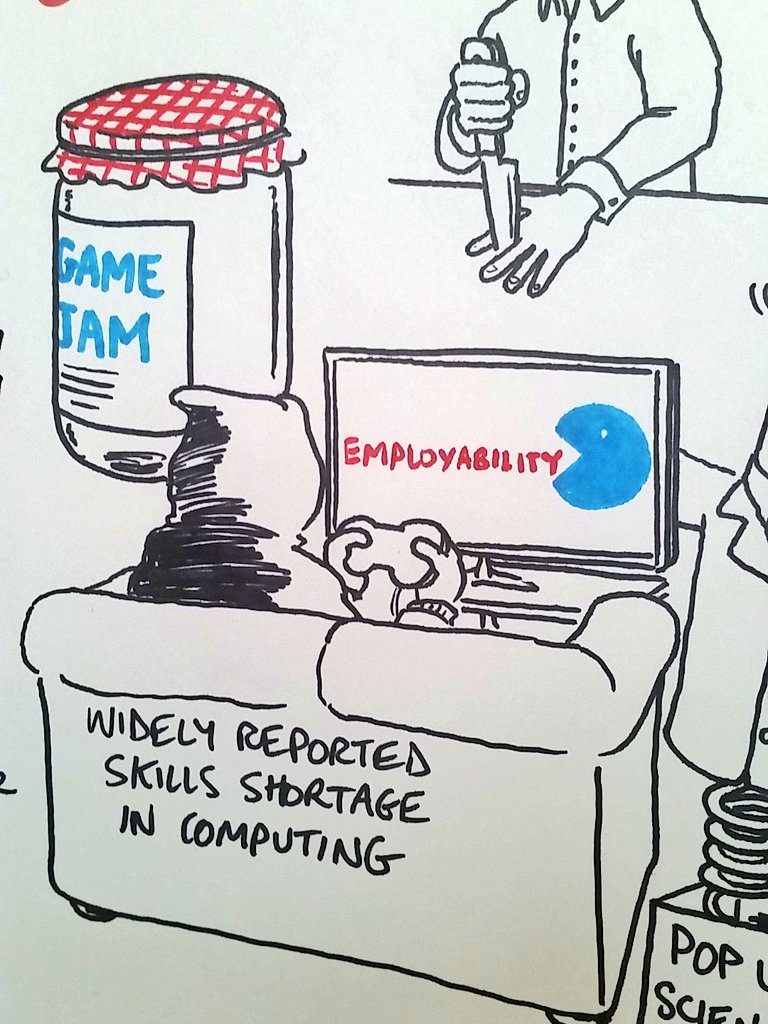 GAME
JAM
EMPLOYABILITY
WIDELY REPORTED
SKILLS SHORTAGE
IN COMPUTING
POP U
SCIEN